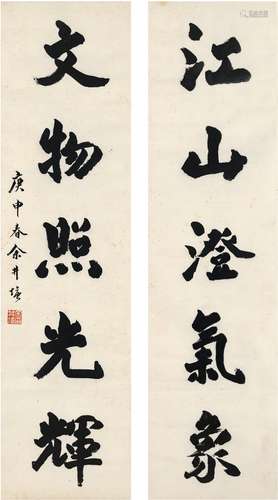 江山澄氣象
文物照光輝
庚申春余井塘